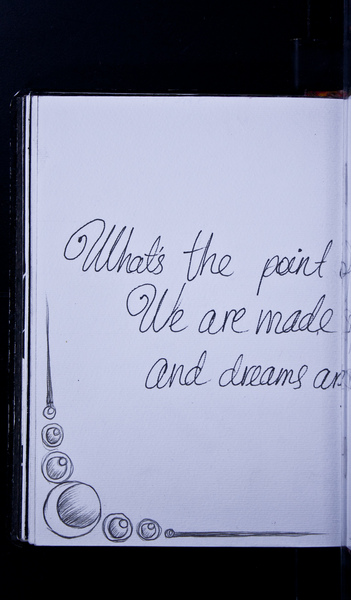 What's the point
We are made
and dreams are